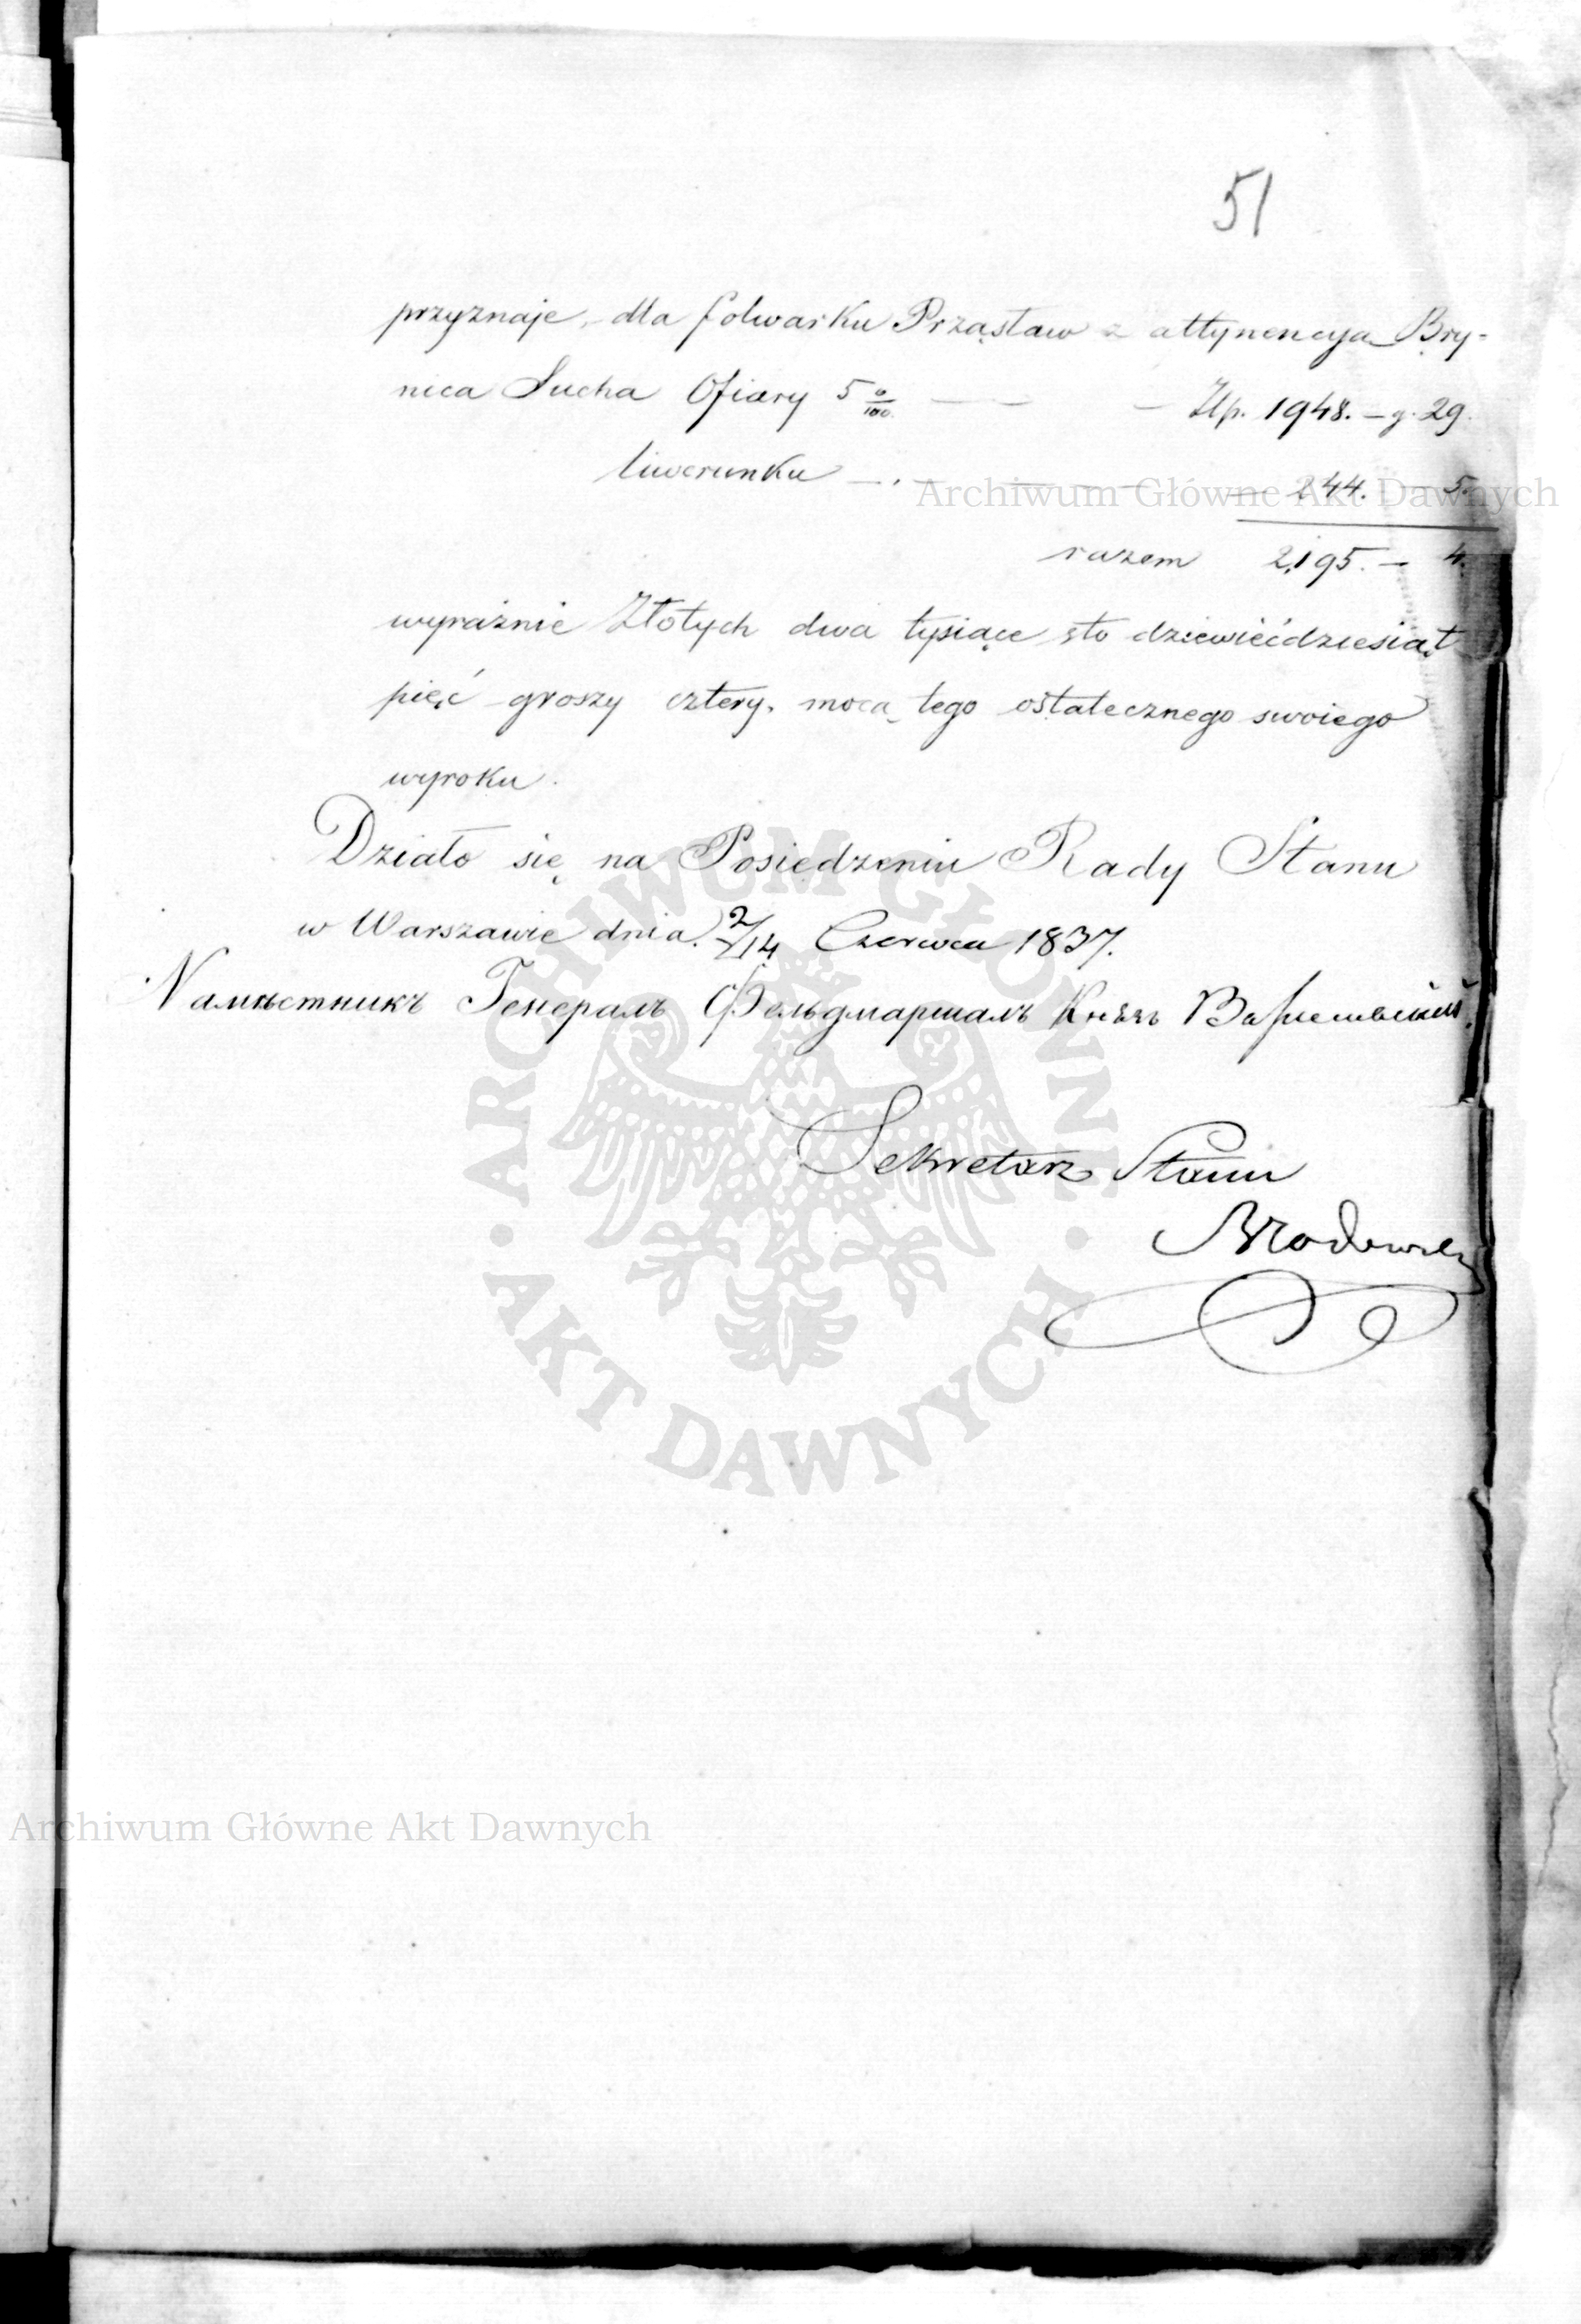 51
przyznaje, dla folwarku Prząsław z attynencyą Bry-
nica Sucha Ofiary 5 0/100. — — Złp. 1948. — g. 29.
liwerunku — . — — — — — 244. — 5.
Archiwum Główne Akt Dawnych
razem 2,195. — 4.
wyraźnie Złotych dwa tysiące sto dziewięćdziesiąt
pięć groszy cztery, mocą tego ostatecznego swoiego
wyroku.
Działo się na Posiedzeniu Rady Stanu
w Warszawie dnia 2/14 Czerwca 1837.
Намѣстникъ Генералъ Фельдмаршалъ Князь Варшавскій.
Sekretarz Stanu
ARCHIWUM GŁÓWNE • AKT DAWNYCH •
Archiwum Główne Akt Dawnych